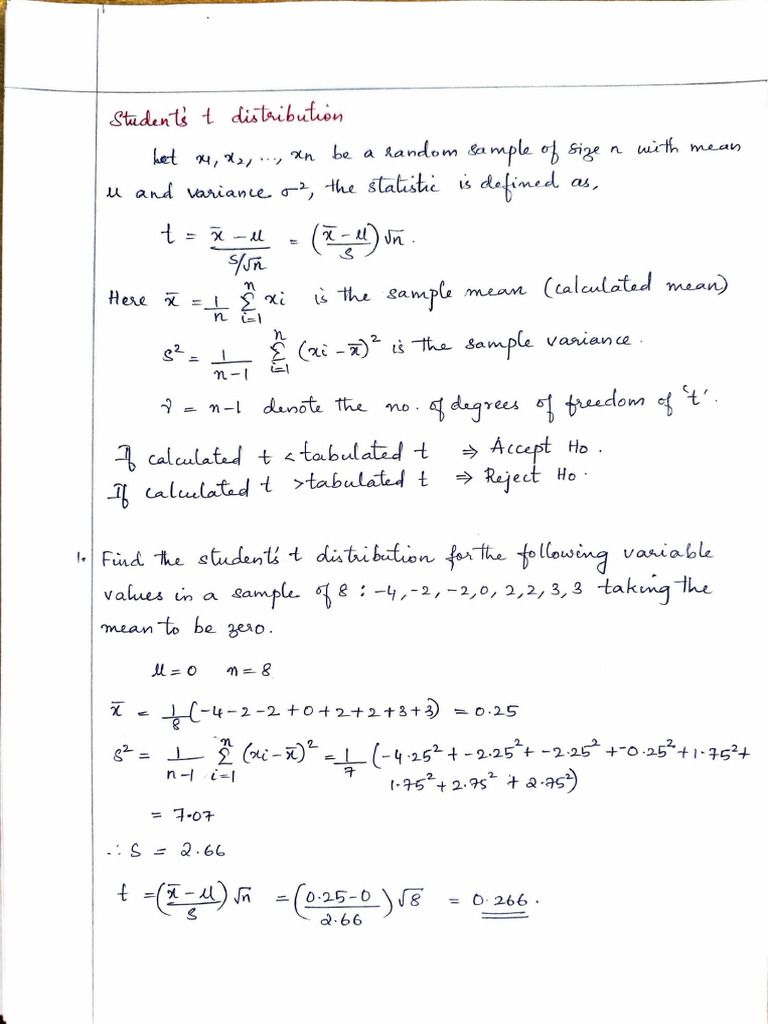 Student's t distribution
Let x1, x2, ..., xn be a random sample of size n with mean
μ and variance σ², the statistic is defined as,
t = (x̄ - μ)/(S/√n) = ((x̄ - μ)/S)√n.
Here x̄ = 1/n Σ_{i=1}^{n} xi is the sample mean (calculated mean)
S² = 1/(n-1) Σ_{i=1}^{n} (xi - x̄)² is the sample variance.
γ = n-1 denote the no. of degrees of freedom of 't'.
If calculated t < tabulated t ⇒ Accept Ho.
If calculated t > tabulated t ⇒ Reject Ho.
1. Find the student's t distribution for the following variable
values in a sample of 8 : -4, -2, -2, 0, 2, 2, 3, 3 taking the
mean to be zero.
μ = 0 n = 8
x̄ = 1/8 (-4-2-2+0+2+2+3+3) = 0.25
S² = 1/(n-1) Σ_{i=1}^{n} (xi - x̄)² = 1/7 (-4.25² + -2.25² + -2.25² + -0.25² + 1.75² +
1.75² + 2.75² + 2.75²)
= 7.07
∴ S = 2.66
t = ((x̄ - μ)/S)√n = ((0.25-0)/2.66)√8 = 0.266.